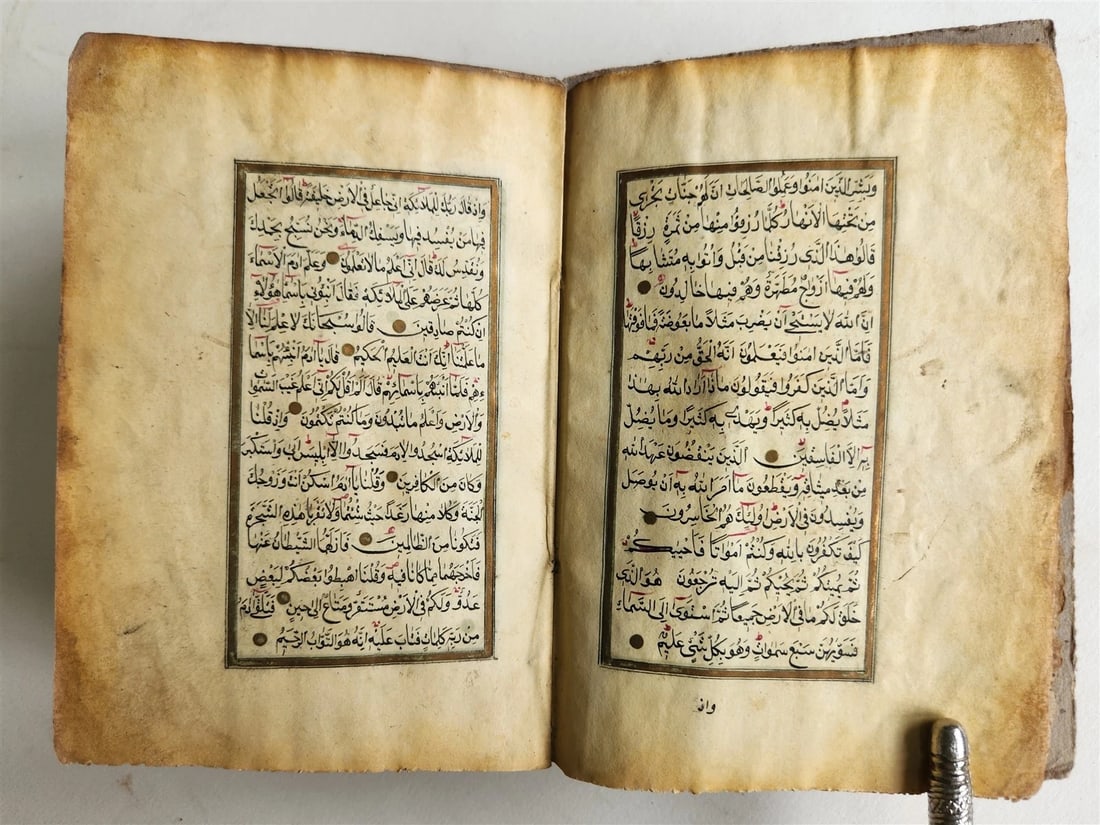 وَبَشِّرِ الَّذِينَ اٰمَنُوا وَعَمِلُوا الصَّالِحَاتِ اَنَّ لَهُمْ جَنَّاتٍ تَجْرِي
مِنْ تَحْتِهَا الْاَنْهَارُ كُلَّمَا رُزِقُوا مِنْهَا مِنْ ثَمَرَةٍ رِزْقًا
قَالُوا هٰذَا الَّذِي رُزِقْنَا مِنْ قَبْلُ وَاُتُوا بِهِ مُتَشَابِهًا
وَلَهُمْ فِيهَا اَزْوَاجٌ مُطَهَّرَةٌ وَهُمْ فِيهَا خَالِدُونَ
اِنَّ اللهَ لَا يَسْتَحْيِ اَنْ يَضْرِبَ مَثَلًا مَا بَعُوضَةً فَمَا فَوْقَهَا
فَاَمَّا الَّذِينَ اٰمَنُوا فَيَعْلَمُونَ اَنَّهُ الْحَقُّ مِنْ رَبِّهِمْ
وَاَمَّا الَّذِينَ كَفَرُوا فَيَقُولُونَ مَاذَا اَرَادَ اللهُ بِهٰذَا
مَثَلًا يُضِلُّ بِهِ كَثِيرًا وَيَهْدِي بِهِ كَثِيرًا وَمَا يُضِلُّ
بِهِ اِلَّا الْفَاسِقِينَ الَّذِينَ يَنْقُضُونَ عَهْدَ اللهِ
مِنْ بَعْدِ مِيثَاقِهِ وَيَقْطَعُونَ مَا اَمَرَ اللهُ بِهِ اَنْ يُوصَلَ
وَيُفْسِدُونَ فِي الْاَرْضِ اُولٰئِكَ هُمُ الْخَاسِرُونَ
كَيْفَ تَكْفُرُونَ بِاللهِ وَكُنْتُمْ اَمْوَاتًا فَاَحْيَاكُمْ
ثُمَّ يُمِيتُكُمْ ثُمَّ يُحْيِيكُمْ ثُمَّ اِلَيْهِ تُرْجَعُونَ هُوَ الَّذِي
خَلَقَ لَكُمْ مَا فِي الْاَرْضِ جَمِيعًا ثُمَّ اسْتَوٰى اِلَى السَّمَاءِ
فَسَوّٰيهُنَّ سَبْعَ سَمٰوَاتٍ وَهُوَ بِكُلِّ شَيْءٍ عَلِيمٌ
واذ
وَاِذْ قَالَ رَبُّكَ لِلْمَلَائِكَةِ اِنِّي جَاعِلٌ فِي الْاَرْضِ خَلِيفَةً قَالُوا اَتَجْعَلُ
فِيهَا مَنْ يُفْسِدُ فِيهَا وَيَسْفِكُ الدِّمَاءَ وَنَحْنُ نُسَبِّحُ بِحَمْدِكَ
وَنُقَدِّسُ لَكَ قَالَ اِنِّي اَعْلَمُ مَا لَا تَعْلَمُونَ وَعَلَّمَ اٰدَمَ الْاَسْمَاءَ
كُلَّهَا ثُمَّ عَرَضَهُمْ عَلَى الْمَلَائِكَةِ فَقَالَ اَنْبِئُونِي بِاَسْمَاءِ هٰؤُلَاءِ
اِنْ كُنْتُمْ صَادِقِينَ قَالُوا سُبْحَانَكَ لَا عِلْمَ لَنَا اِلَّا
مَا عَلَّمْتَنَا اِنَّكَ اَنْتَ الْعَلِيمُ الْحَكِيمُ قَالَ يَا اٰدَمُ اَنْبِئْهُمْ بِاَسْمَا
ئِهِمْ فَلَمَّا اَنْبَاَهُمْ بِاَسْمَائِهِمْ قَالَ اَلَمْ اَقُلْ لَكُمْ اِنِّي اَعْلَمُ غَيْبَ السَّمٰوَاتِ
وَالْاَرْضِ وَاَعْلَمُ مَا تُبْدُونَ وَمَا كُنْتُمْ تَكْتُمُونَ وَاِذْ قُلْنَا
لِلْمَلَائِكَةِ اسْجُدُوا لِاٰدَمَ فَسَجَدُوا اِلَّا اِبْلِيسَ اَبٰى وَاسْتَكْبَرَ
وَكَانَ مِنَ الْكَافِرِينَ وَقُلْنَا يَا اٰدَمُ اسْكُنْ اَنْتَ وَزَوْجُكَ
الْجَنَّةَ وَكُلَا مِنْهَا رَغَدًا حَيْثُ شِئْتُمَا وَلَا تَقْرَبَا هٰذِهِ الشَّجَرَةَ
فَتَكُونَا مِنَ الظَّالِمِينَ فَاَزَلَّهُمَا الشَّيْطَانُ عَنْهَا
فَاَخْرَجَهُمَا مِمَّا كَانَا فِيهِ وَقُلْنَا اهْبِطُوا بَعْضُكُمْ لِبَعْضٍ
عَدُوٌّ وَلَكُمْ فِي الْاَرْضِ مُسْتَقَرٌّ وَمَتَاعٌ اِلٰى حِينٍ فَتَلَقّٰى اٰدَمُ
مِنْ رَبِّهِ كَلِمَاتٍ فَتَابَ عَلَيْهِ اِنَّهُ هُوَ التَّوَّابُ الرَّحِيمُ